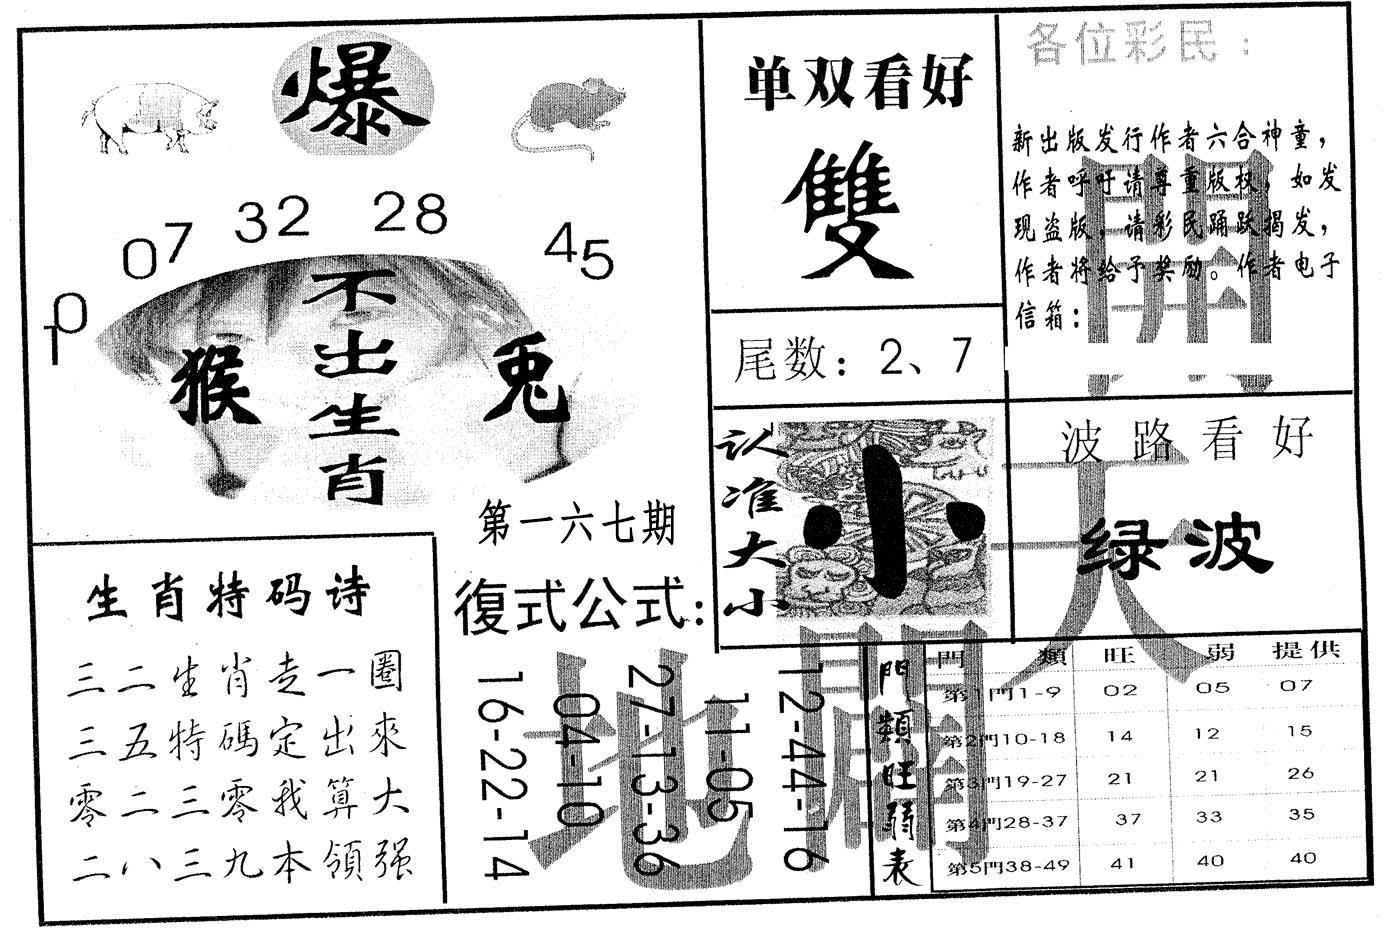 爆
10 07 32 28 45
不出生肖
猴
兎
第一六七期
单双看好
雙
尾数：2、7
各位彩民：
新出版发行作者六合神童，
作者呼吁请尊重版权，如发
现盗版，请彩民踊跃揭发，
作者将给予奖励。作者电子
信箱：
认准大小
小
波路看好
绿波
生肖特码诗
三二生肖走一圈
三五特碼定出來
零二三零我算大
二八三九本領强
復式公式：
16-22-14
04-10
27-13-36
11-05
12-44-16
天
地
開
門類旺弱表
門類 旺 弱 提供
第1門1-9 02 05 07
第2門10-18 14 12 15
第3門19-27 21 21 26
第4門28-37 37 33 35
第5門38-49 41 40 40